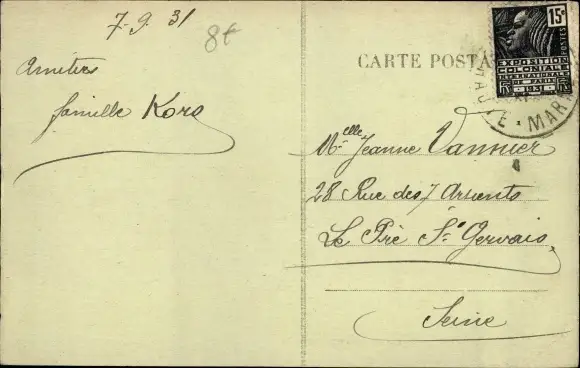 7-9 31
8€
Amitiés
famille Kors
CARTE POSTA
15c
POSTES
EXPOSITION
COLONIALE
INTERNATIONALE
DE PARIS
1931
MAR
Mlle Jeanne Vannier
28 Rue des 7 Arpents
Le Pré St Gervais
Seine